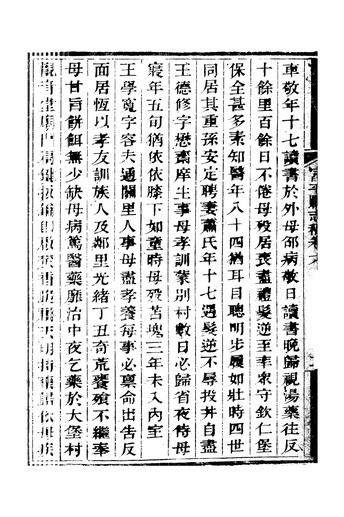 車敬年十七讀書於外母邵病敬日讀書晚歸視湯藥往反
十餘里百餘日不倦母歿居喪盡禮髮逆至率衆守欽仁堡
保全甚多素知醫年八十四猶耳目聰明步履如壯時四世
同居其重孫安定聘妻蕭氏年十七遇髮逆不辱投井自盡
王德修字懋肅庠生事母孝訓蒙別村數日必歸省夜侍母
寢年五旬猶依依膝下如童時母歿苫塊三年未入內室
王學寬字容夫通關里人事母盡孝養每事必稟命出告反
面居恆以孝友訓族人及鄰里光緒丁丑奇荒饔飱不繼奉
母甘旨餅餌無少缺母病篤醫藥靡治中夜乞藥於大堡村